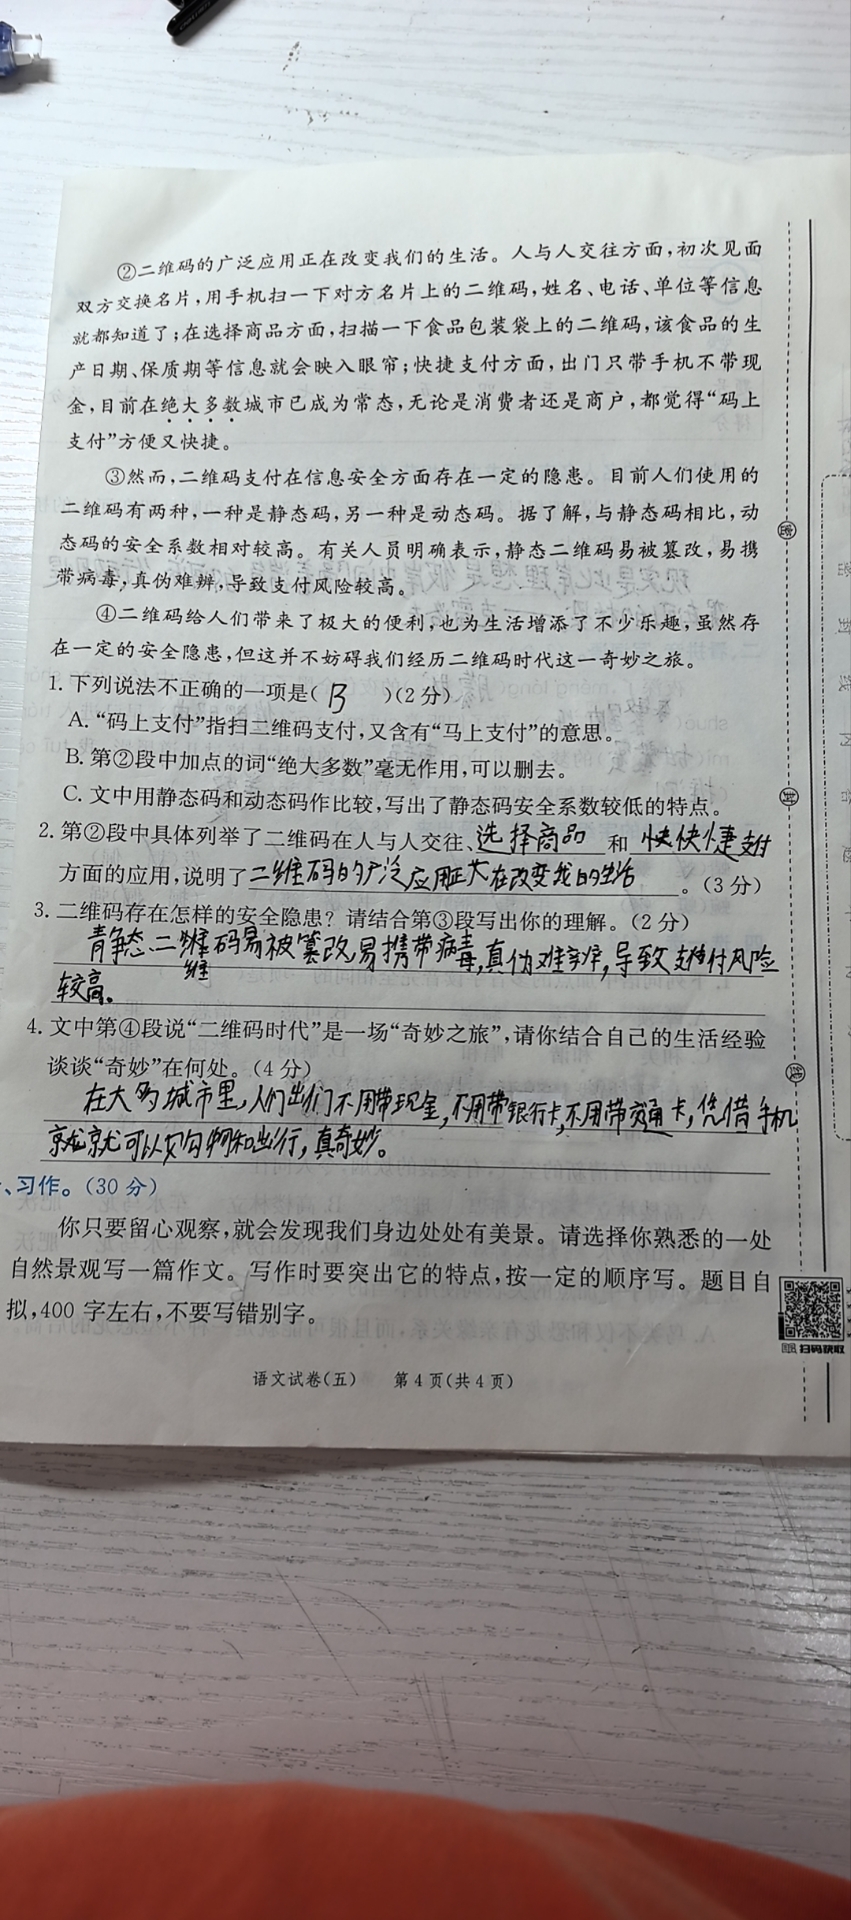 ②二维码的广泛应用正在改变我们的生活。人与人交往方面,初次见面
双方交换名片,用手机扫一下对方名片上的二维码,姓名、电话、单位等信息
就都知道了;在选择商品方面,扫描一下食品包装袋上的二维码,该食品的生
产日期、保质期等信息就会映入眼帘;快捷支付方面,出门只带手机不带现
金,目前在绝大多数城市已成为常态,无论是消费者还是商户,都觉得“码上
支付”方便又快捷。
③然而,二维码支付在信息安全方面存在一定的隐患。目前人们使用的
二维码有两种,一种是静态码,另一种是动态码。据了解,与静态码相比,动
态码的安全系数相对较高。有关人员明确表示,静态二维码易被篡改,易携
带病毒,真伪难辨,导致支付风险较高。
④二维码给人们带来了极大的便利,也为生活增添了不少乐趣,虽然存
在一定的安全隐患,但这并不妨碍我们经历二维码时代这一奇妙之旅。
1. 下列说法不正确的一项是( B )(2分)
A. “码上支付”指扫二维码支付,又含有“马上支付”的意思。
B. 第②段中加点的词“绝大多数”毫无作用,可以删去。
C. 文中用静态码和动态码作比较,写出了静态码安全系数较低的特点。
2. 第②段中具体列举了二维码在人与人交往、选择商品 和 快捷支付
方面的应用,说明了二维码的广泛应用正在改变我的生活。(3分)
3. 二维码存在怎样的安全隐患?请结合第③段写出你的理解。(2分)
静态二维码易被篡改,易携带病毒,真伪难辨,导致支付风险
维
较高。
4. 文中第④段说“二维码时代”是一场“奇妙之旅”,请你结合自己的生活经验
谈谈“奇妙”在何处。(4分)
在大多城市里,人们出门不用带现金,不用带银行卡,不用带交通卡,凭借手机
就可以购物和出行,真奇妙。
、习作。(30分)
你只要留心观察,就会发现我们身边处处有美景。请选择你熟悉的一处
自然景观写一篇作文。写作时要突出它的特点,按一定的顺序写。题目自
拟,400字左右,不要写错别字。
扫码获取
语文试卷(五) 第4页(共4页)
密
封
线